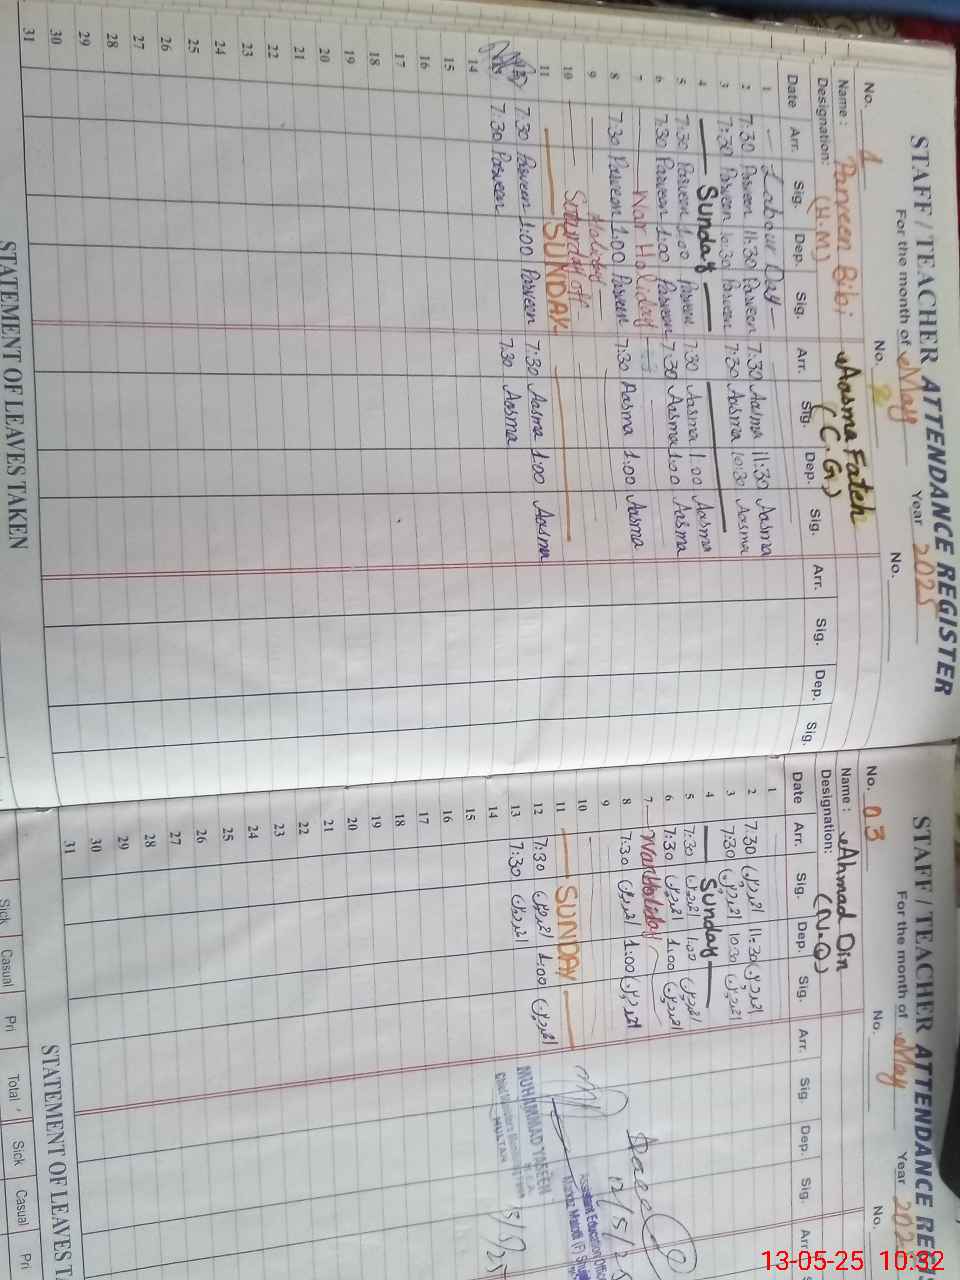 STAFF / TEACHER ATTENDANCE REGISTER
For the month of May Year 2025
No. 1 No. 2 No.
Name : Parveen Bibi Aasma Fateh
Designation: (H.M) (C.G)
Date Arr. Sig. Dep. Sig. Arr. Sig. Dep. Sig. Arr. Sig. Dep. Sig.
1 Labour Day
2 7:30 Parveen 11:30 Parveen 7:30 Aasma 11:30 Aasma
3 7:30 Parveen 10:30 Parveen 7:30 Aasma 10:30 Aasma
4 Sunday
5 7:30 Parveen 1:00 Parveen 7:30 Aasma 1:00 Aasma
6 7:30 Parveen 1:00 Parveen 7:30 Aasma 1:00 Aasma
7 War Holiday
8 7:30 Parveen 1:00 Parveen 7:30 Aasma 1:00 Aasma
9 Holiday
10 Saturday off
11 SUNDAY
7:30 Parveen 1:00 Parveen 7:30 Aasma 1:00 Aasma
7:30 Parveen 7:30 Aasma
14
15
16
17
18
19
20
21
22
23
24
25
26
27
28
29
30
31
STATEMENT OF LEAVES TAKEN
STAFF / TEACHER ATTENDANCE REGI
For the month of May Year 202
No. 03 No. No.
Name : Ahmad Din
Designation:
Date Arr. Sig. Dep. Sig. Arr. Sig. Dep. Sig. Arr.
1
2 7:30 احمد دین 11:30 احمد دین
3 7:30 احمد دین 10:30 احمد دین
4 Sunday
5 7:30 احمد دین 1:00 احمد دین
6 7:30 احمد دین 1:00 احمد دین
7 War Holiday
8 7:30 احمد دین 1:00 احمد دین
9
10
11 SUNDAY
12 7:30 احمد دین 1:00 احمد دین
13 7:30 احمد دین
14
15
16
17
18
19
20
21
22
23
24
25
26
27
28
29
30
31
12/5/25
Assistant Education Officer
MUHAMMAD YASEEN
MULTAN
13/5/2
STATEMENT OF LEAVES T
Sick Casual Pri Total Sick Casual Pri
13-05-25 10:32